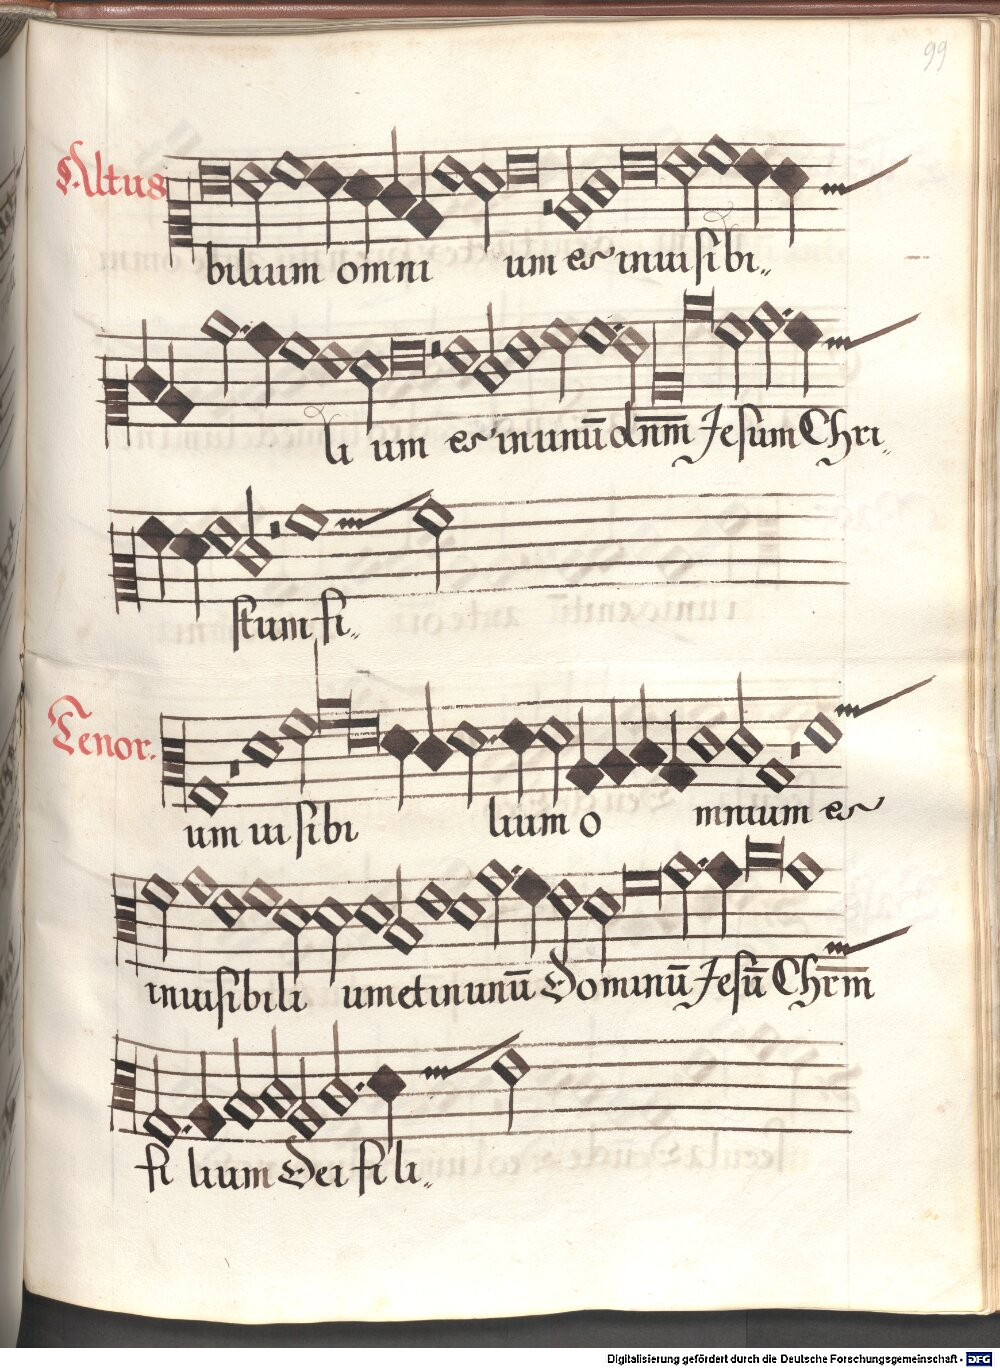 99
Altus
bilium omni um et inuisibi„
li um et in unū dn̄m̄ Jesum Chri„
stum fi„
Tenor.
um uisibi lium o mnium et
inuisibili um et in unū Dominū Jesū Chr̄m̄
fi lium Dei fi li„
Digitalisierung gefördert durch die Deutsche Forschungsgemeinschaft - DFG